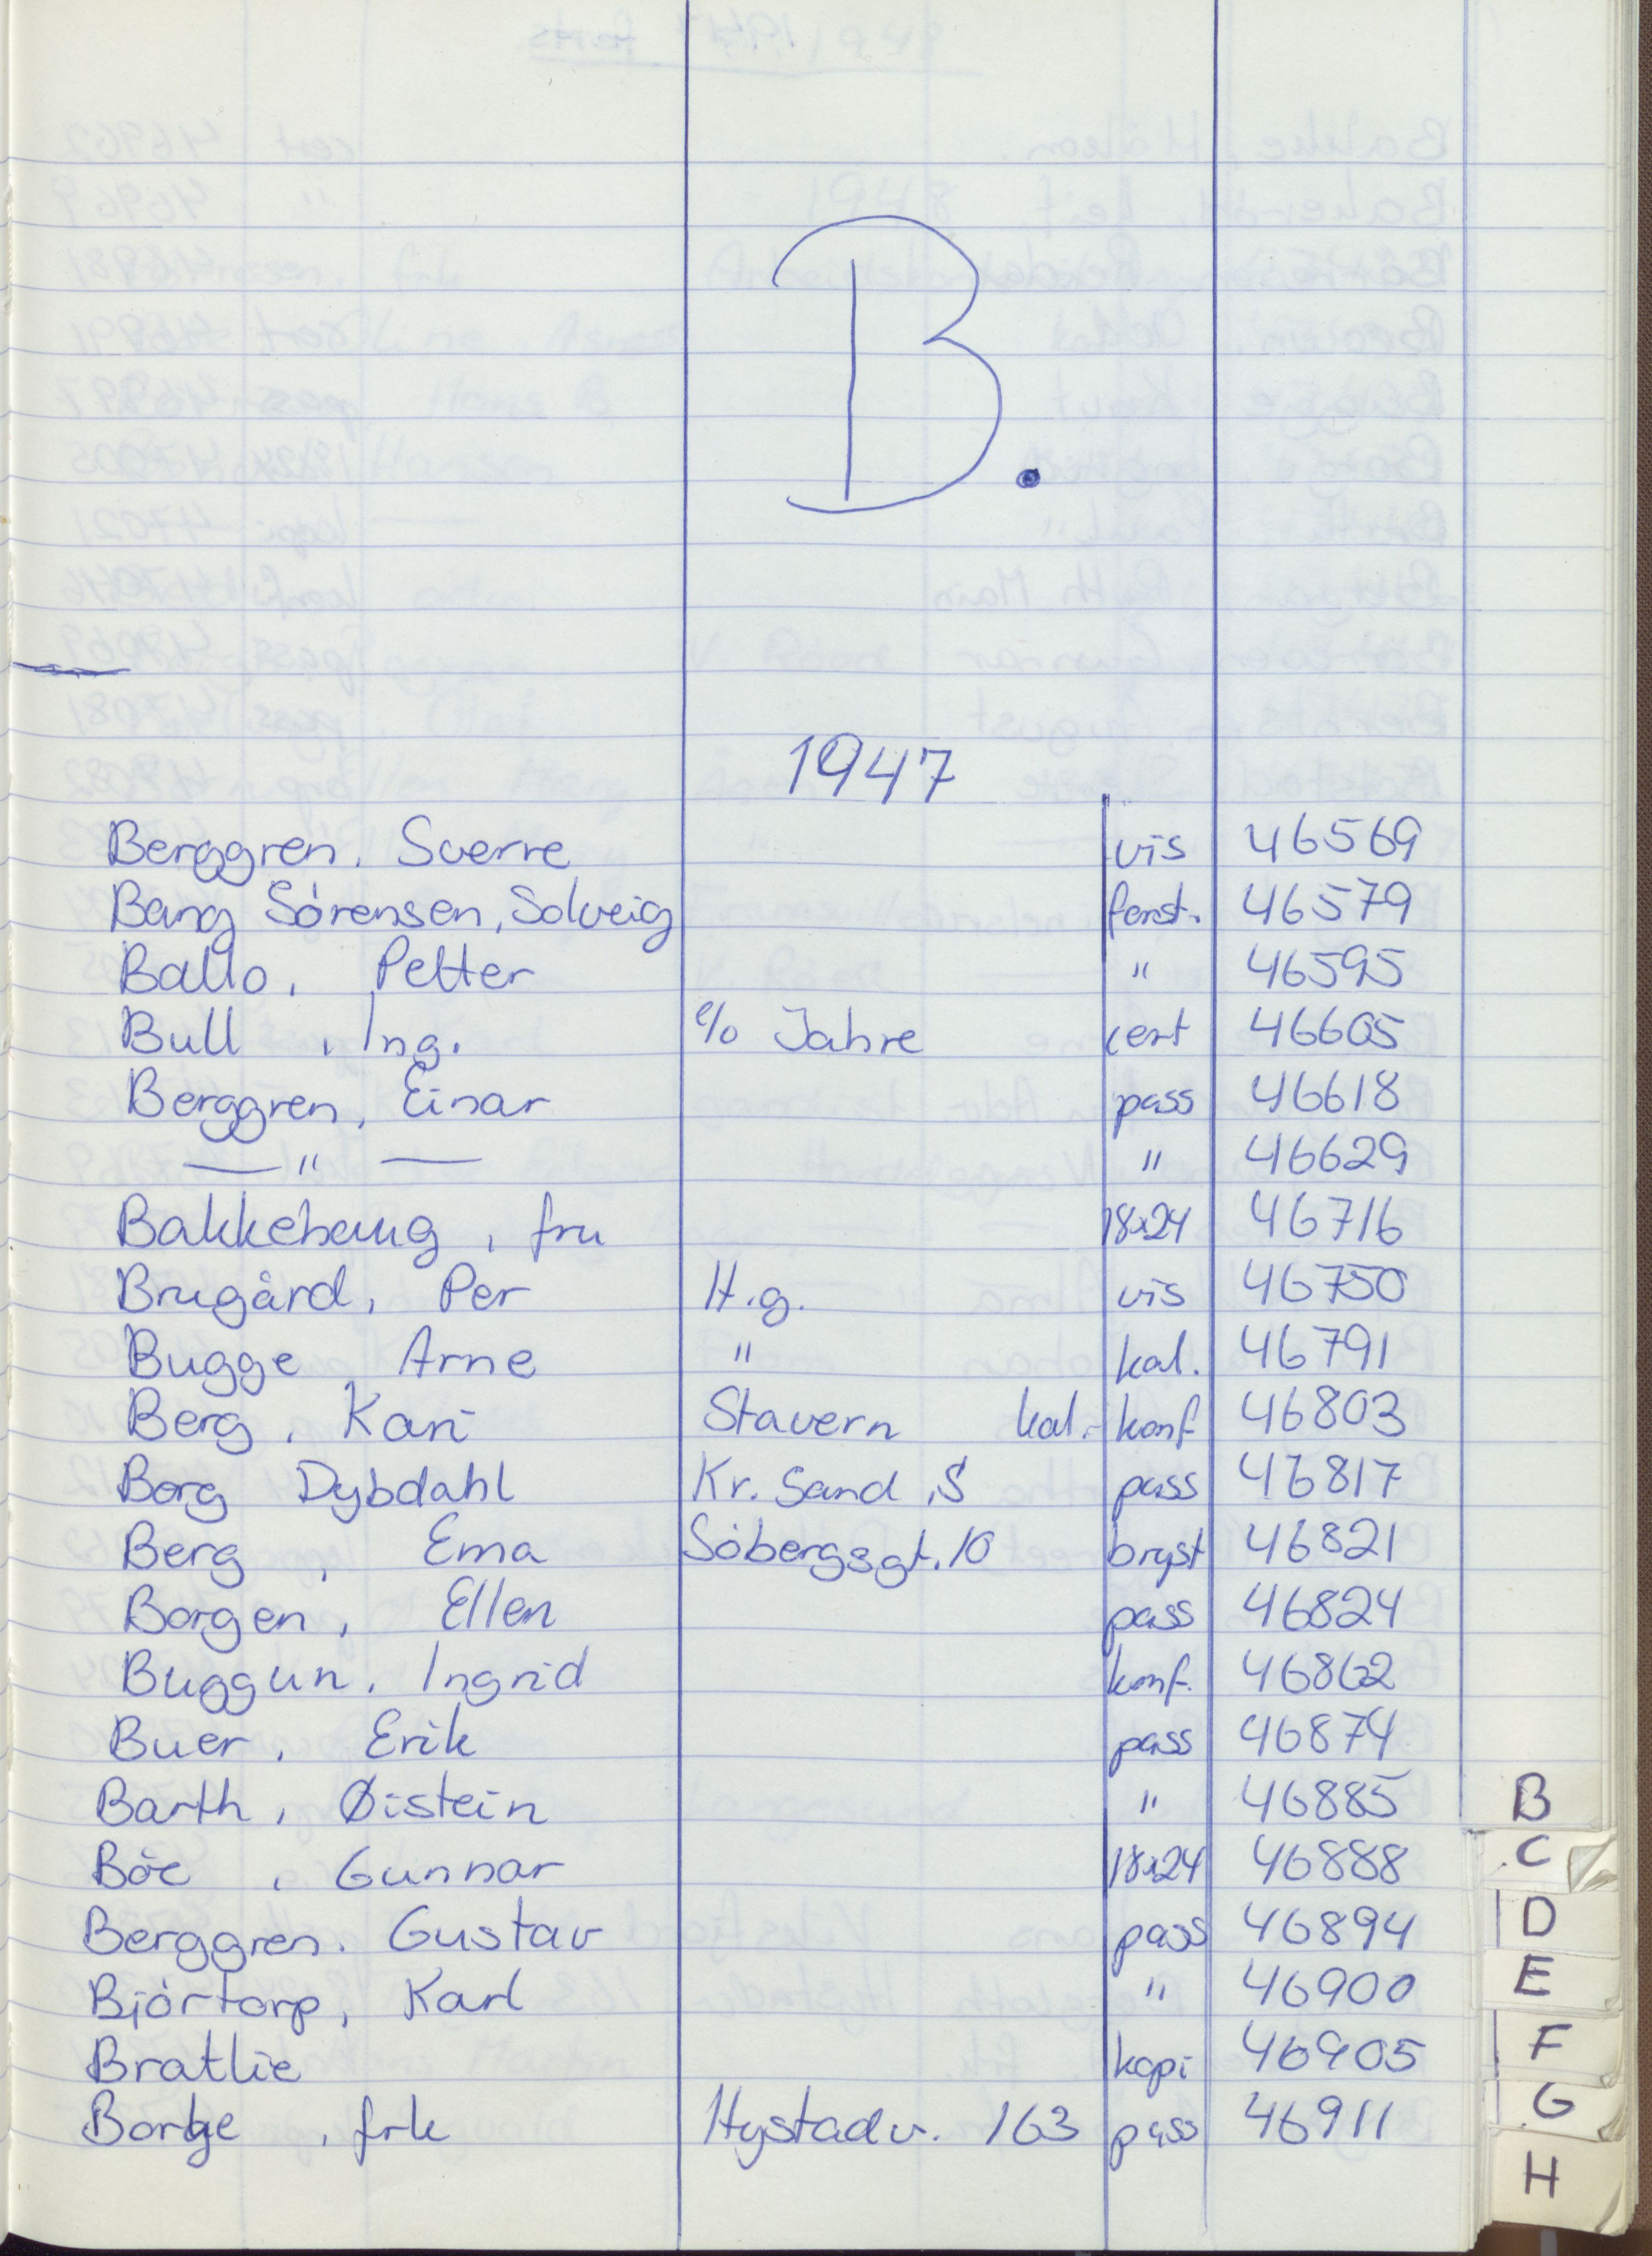 B.
1947
Berggren, Sverre vis 46569
Bang Sórensen, Solveig forst. 46579
Ballo, Petter " 46595
Bull, Ing. c/o Jahre cert 46605
Berggren, Einar pass 46618
— " — " 46629
Bakkehaug, fru 18x24 46716
Brugård, Per H.g. vis 46750
Bugge Arne " kal. 46791
Berg, Kari Stavern kal.- konf 46803
Borg Dybdahl Kr. Sand, S pass 46817
Berg, Erna Sóbergsgt. 10 bryst 46821
Borgen, Ellen pass 46824
Buggun, Ingrid konf. 46862
Buer, Erik pass 46874
Barth, Øistein " 46885
Bóe, Gunnar 18x24 46888
Berggren. Gustav pass 46894
Bjórtorp, Karl " 46900
Bratlie kopi 46905
frk Hystadv. 163 pass 46911
B
C
D
E
F
G
H